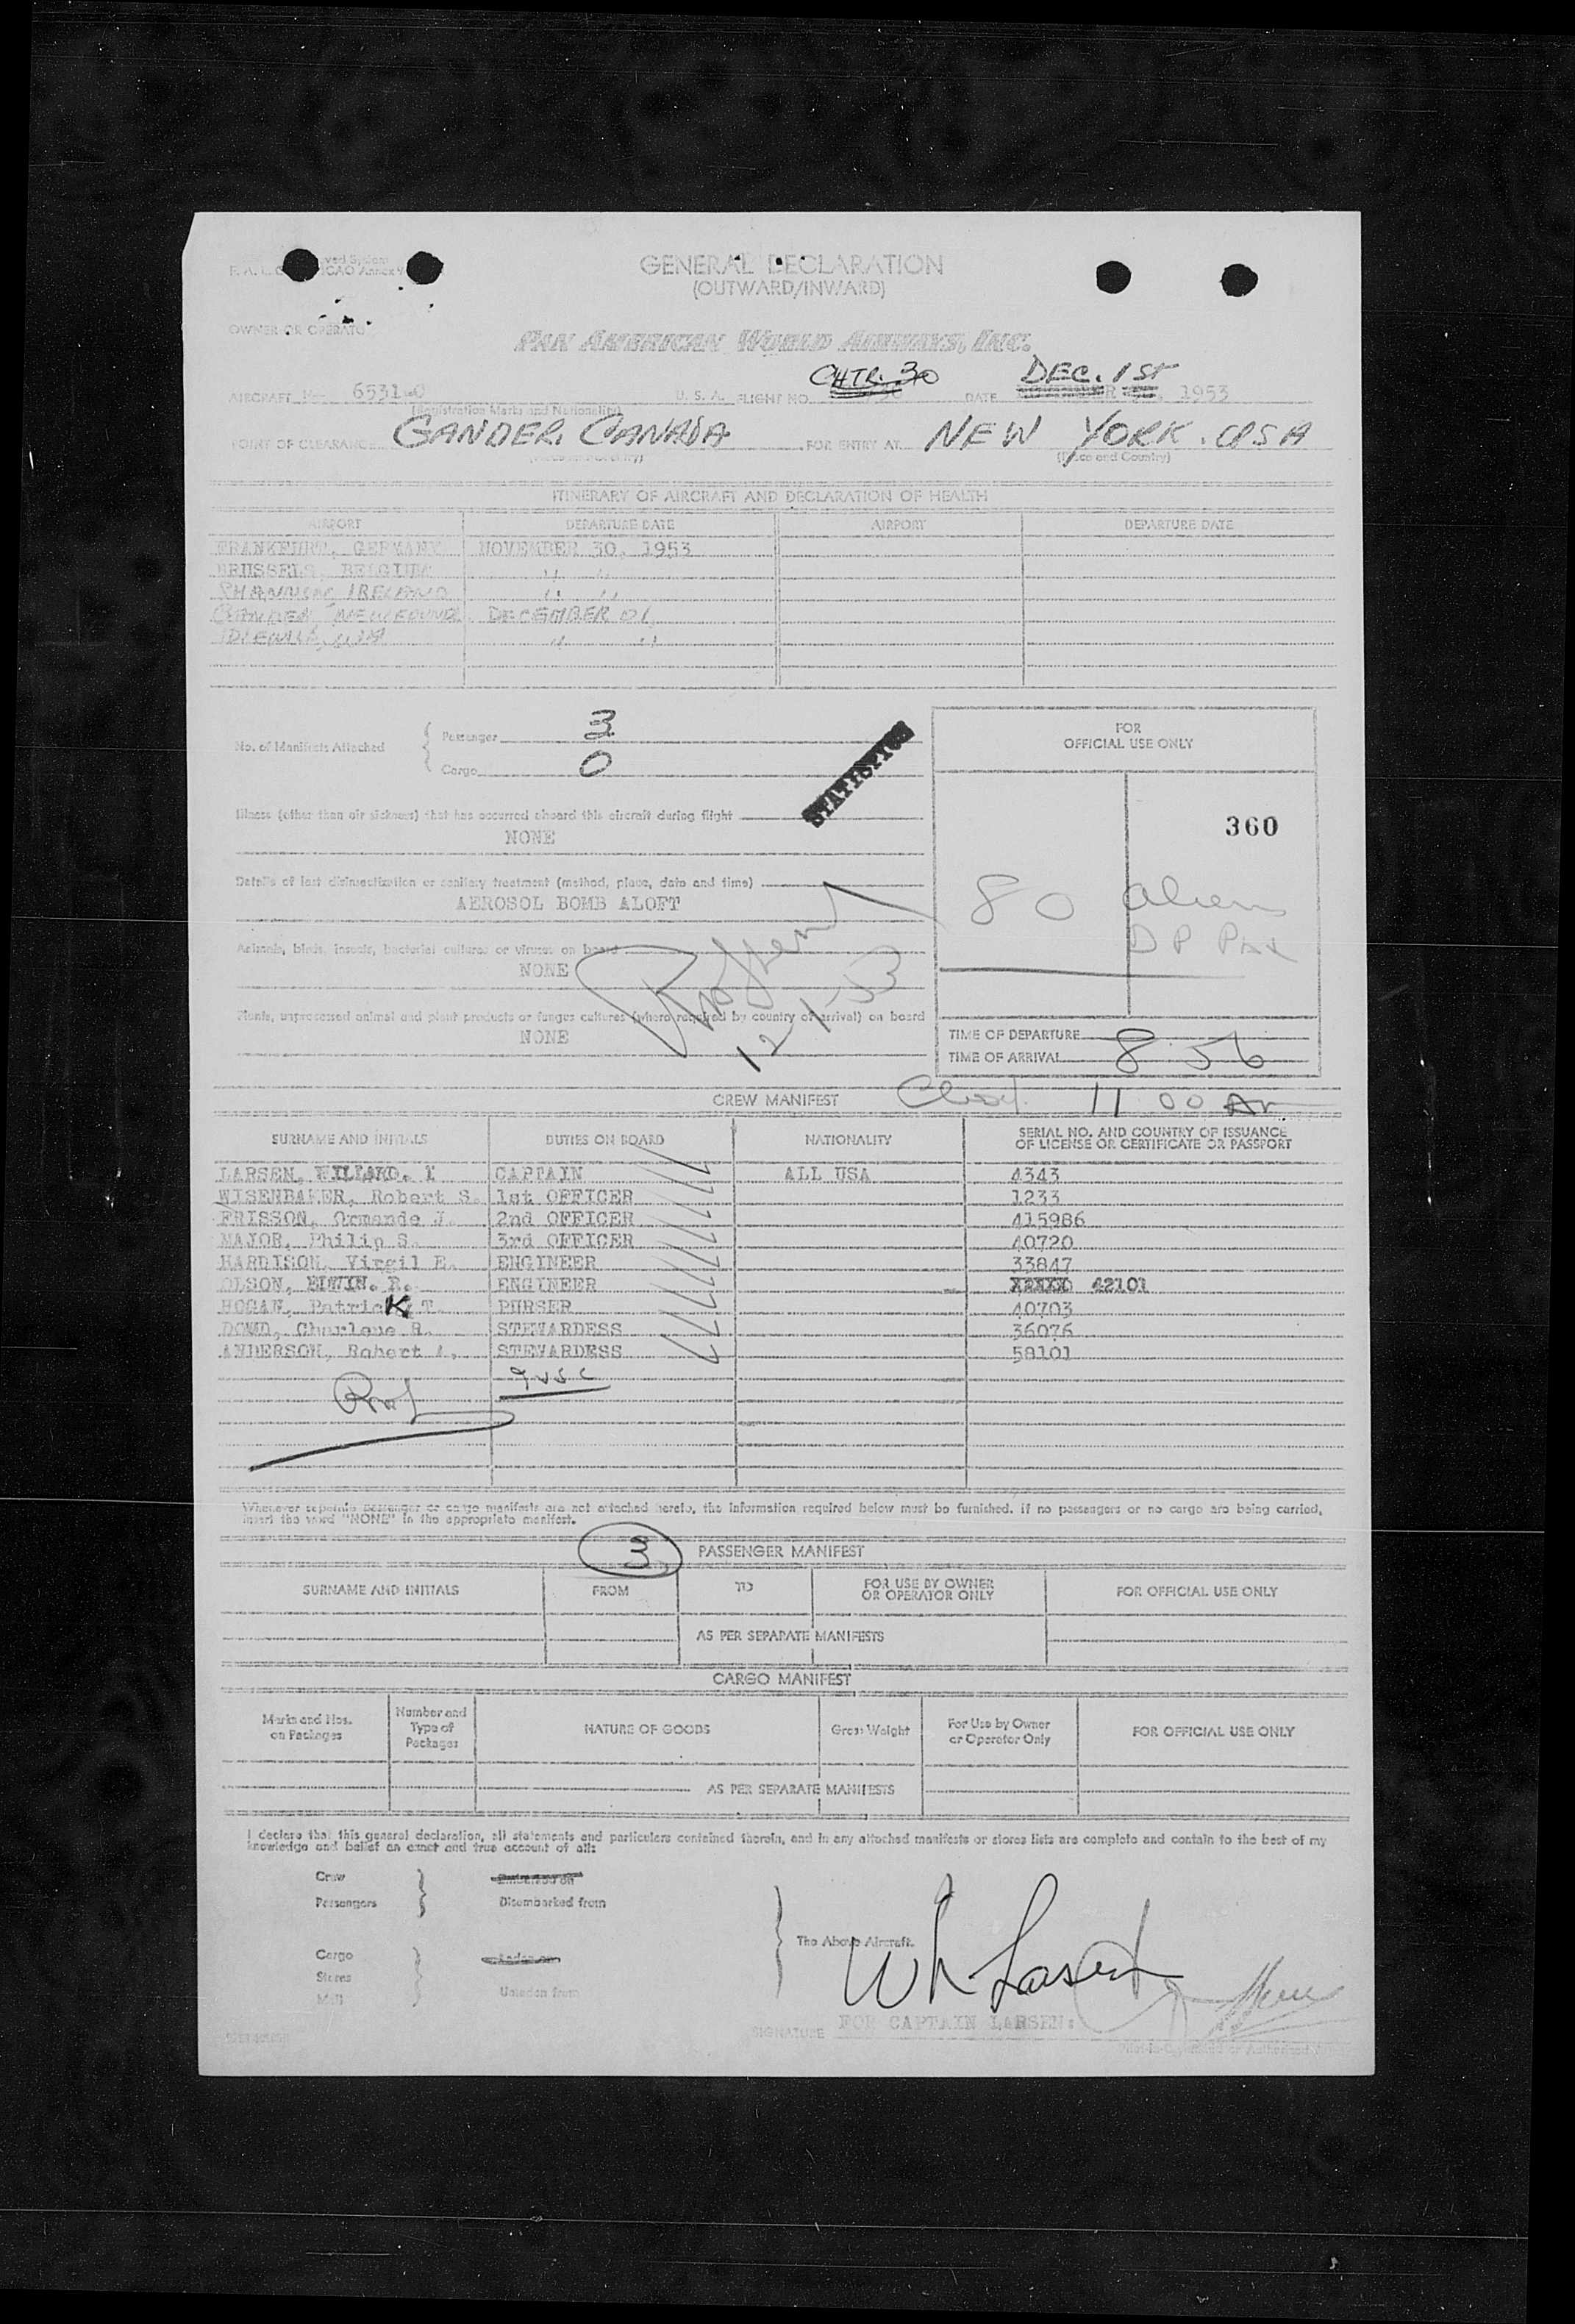 GENERAL DECLARATION
(OUTWARD/INWARD)
OWNER OR OPERATOR
PAN AMERICAN WORLD AIRWAYS, INC.
CHTR. 30 DEC. 1ST
AIRCRAFT U. S. A. FLIGHT NO. DATE 1953
(Registration Marks and Nationality)
POINT OF CLEARANCE GANDER. CANADA FOR ENTRY AT NEW YORK. USA
(Place and Country)
ITINERARY OF AIRCRAFT AND DECLARATION OF HEALTH
AIRPORT DEPARTURE DATE AIRPORT DEPARTURE DATE
FRANKFURT, GERMANY NOVEMBER 30, 1953
BRUSSELS, BELGIUM " "
SHANNON, IRELAND " "
GANDER NEWFOUND. DECEMBER 01
" "
No. of Manifests Attached
Passenger 3
Cargo 0
STATISTICS
FOR
OFFICIAL USE ONLY
360
Illness (other than air sickness) that has occurred aboard this aircraft during flight
NONE
Details of last disinsectization or sanitary treatment (method, place, date and time)
AEROSOL BOMB ALOFT
80 aliens
DP Pax
Animals, birds, insects, bacterial cultures or viruses on board
NONE
12-1-53
Plants, unprocessed animal and plant products or fungus cultures (where required by country of arrival) on board
NONE
TIME OF DEPARTURE
TIME OF ARRIVAL 8:56
11 00 AM
CREW MANIFEST
SURNAME AND INITIALS DUTIES ON BOARD NATIONALITY SERIAL NO. AND COUNTRY OF ISSUANCE
OF LICENSE OR CERTIFICATE OR PASSPORT
LARSEN, CAPTAIN ALL USA 4343
WISENBAKER, Robert S. 1st OFFICER 1233
FRISSON, Ormande J. 2nd OFFICER 415986
MAJOR, Philip S. 3rd OFFICER 40720
HARDISON, Virgil E. ENGINEER 33847
OLSON, EDWIN. R. ENGINEER 42101
HOGAN, PatricK T. PURSER 40703
DOWD, Charlene R. STEWARDESS 36076
ANDERSON, Robert A. STEWARDESS 58101
9 USC
Whenever separate passenger or cargo manifests are not attached hereto, the information required below must be furnished. If no passengers or no cargo are being carried,
insert the word "NONE" in the appropriate manifest.
3 PASSENGER MANIFEST
SURNAME AND INITIALS FROM TO FOR USE BY OWNER
OR OPERATOR ONLY FOR OFFICIAL USE ONLY
AS PER SEPARATE MANIFESTS
CARGO MANIFEST
Marks and Nos.
on Packages
Number and
Type of
Packages
NATURE OF GOODS Gross Weight
For Use by Owner
or Operator Only
FOR OFFICIAL USE ONLY
AS PER SEPARATE MANIFESTS
I declare that this general declaration, all statements and particulars contained therein, and in any attached manifests or stores lists are complete and contain to the best of my
knowledge and belief an exact and true account of all:
Crew Embarked on
Passengers Disembarked from
The Above Aircraft.
Cargo Laden on
Stores
Mail Unladen from
SIGNATURE FOR CAPTAIN LARSEN: